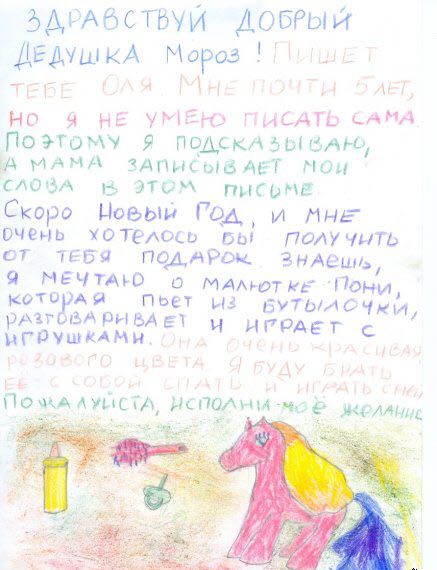 ЗДРАВСТВУЙ ДОБРЫЙ
ДЕДУШКА МОРОЗ! ПИШЕТ
ТЕБЕ ОЛЯ. МНЕ ПОЧТИ 5 ЛЕТ,
НО Я НЕ УМЕЮ ПИСАТЬ САМА.
ПОЭТОМУ Я ПОДСКАЗЫВАЮ,
А МАМА ЗАПИСЫВАЕТ МОИ
СЛОВА В ЭТОМ ПИСЬМЕ.
СКОРО НОВЫЙ ГОД, И МНЕ
ОЧЕНЬ ХОТЕЛОСЬ БЫ ПОЛУЧИТЬ
ОТ ТЕБЯ ПОДАРОК. ЗНАЕШЬ,
Я МЕЧТАЮ О МАЛЮТКЕ ПОНИ,
КОТОРАЯ ПЬЕТ ИЗ БУТЫЛОЧКИ,
РАЗГОВАРИВАЕТ И ИГРАЕТ С
ИГРУШКАМИ. ОНА ОЧЕНЬ КРАСИВАЯ
РОЗОВОГО ЦВЕТА. Я БУДУ БРАТЬ
ЕЕ С СОБОЙ СПАТЬ И ИГРАТЬ С НЕЙ
ПОЖАЛУЙСТА, ИСПОЛНИ МОЁ ЖЕЛАНИЕ